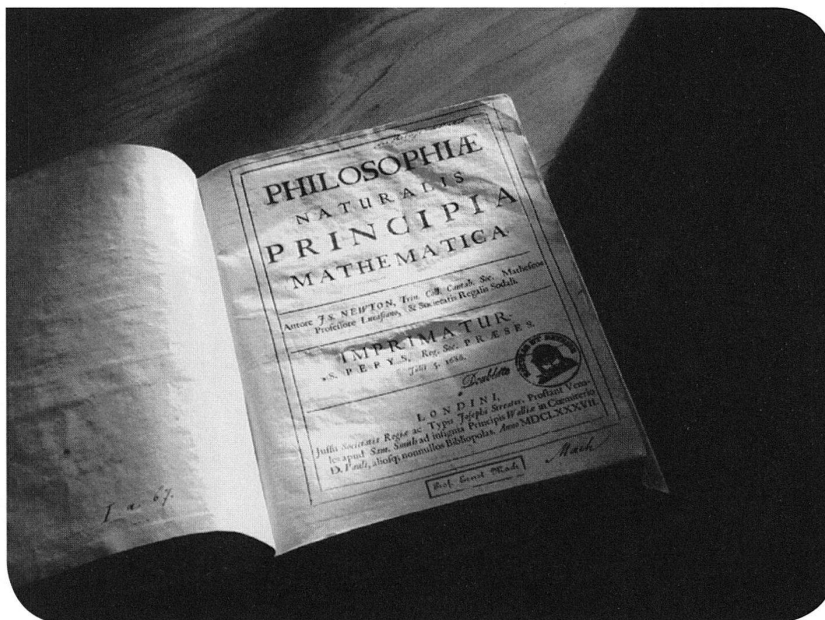 PHILOSOPHIÆ
NATURALIS
PRINCIPIA
MATHEMATICA
Autore JS. NEWTON, Trin. Coll. Cantab. Soc. Matheseos
Professore Lucasiano, & Societatis Regalis Sodali.
IMPRIMATUR.
S. PEPYS, Reg. Soc. PRÆSES.
Julii 5. 1686.
Doublette
LONDINI,
Jussu Societatis Regiæ ac Typis Josephi Streater. Prostant Vena-
les apud Sam. Smith ad insignia Principis Walliæ in Coemiterio
D. Pauli, aliosq; nonnullos Bibliopolas. Anno MDCLXXXVII.
Mach
Prof. Ernst Mach
I a 67.